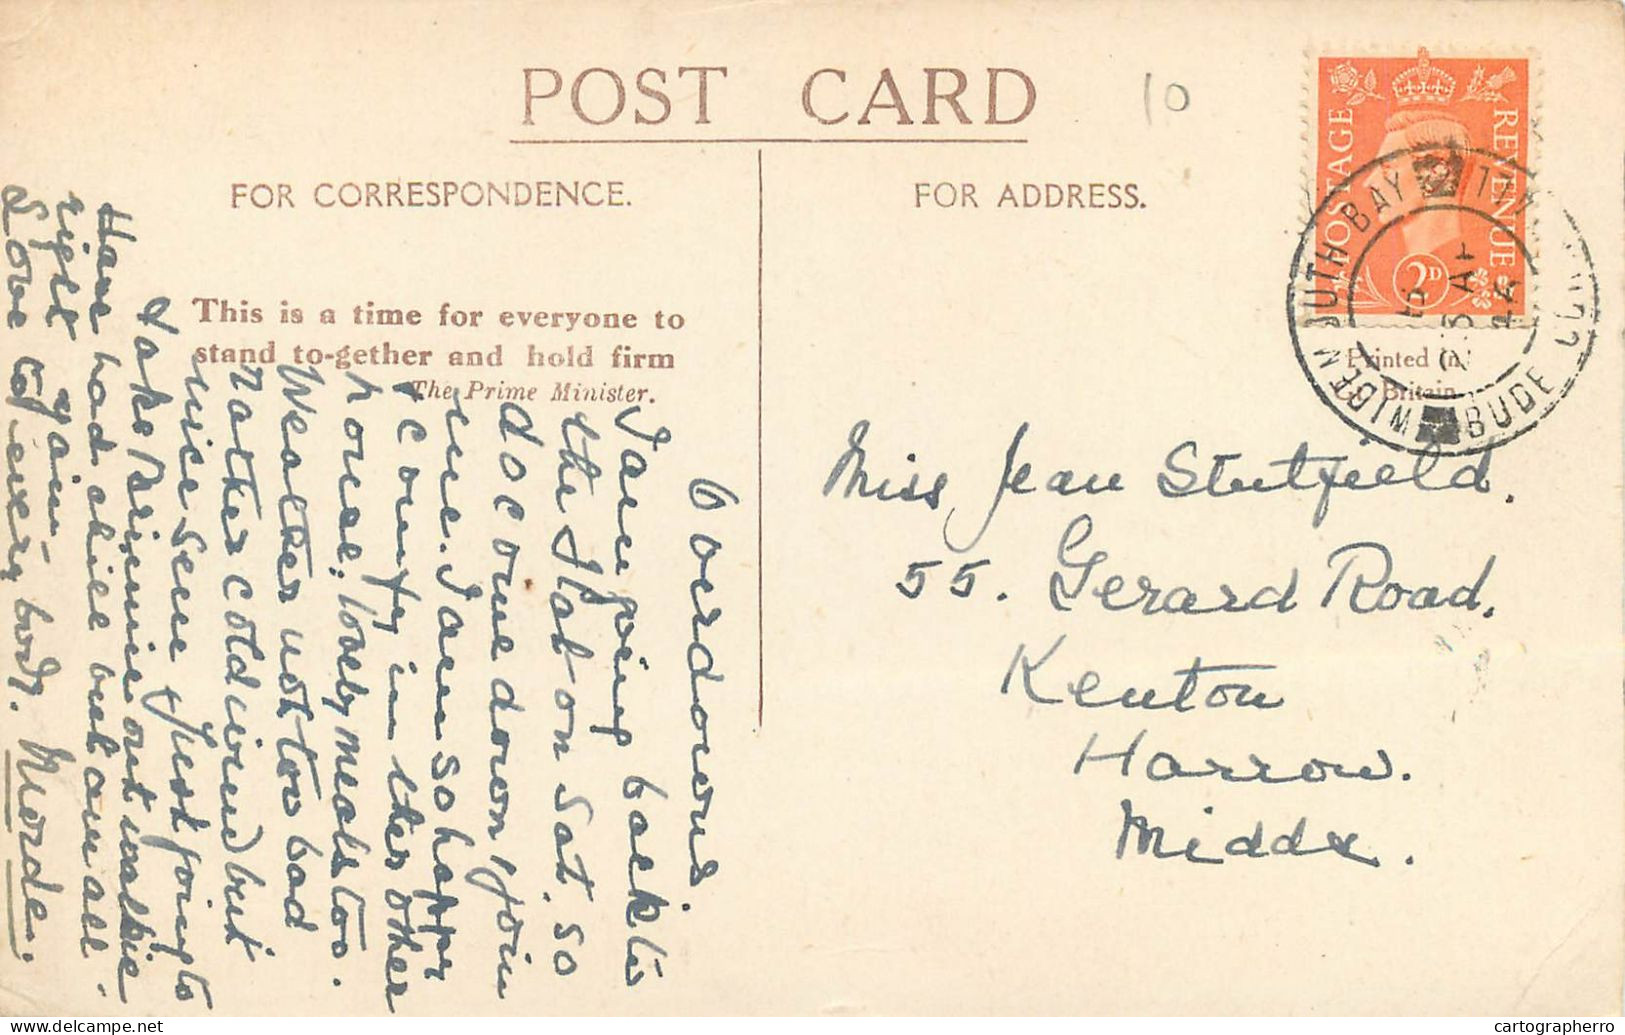 POST CARD
10
FOR CORRESPONDENCE.
FOR ADDRESS.
POSTAGE
REVENUE
2D
WIDEMOUTH BAY
BUDE
This is a time for everyone to
stand to-gether and hold firm
The Prime Minister.
Printed in
Gt. Britain
Miss Jean Stutfield.
55. Gerard Road,
Kenton
Harrow.
Middx.
I am going back to
the flat on Sat. so
do come down & join
me. I am so happy
& comfy in this other
house; lovely meals too.
Weather not too bad
rather cold wind but
nice sun. Just going to
take Primmie out walkie
Have had chill but am all
right again.
Love to every body.
cartographerro